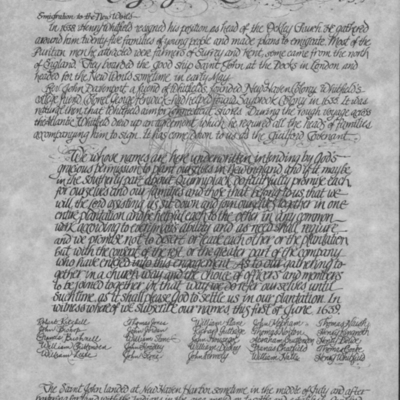 Emigration to the New World—
In 1638 Henry Whitfield resigned his position as head of the Ockley Church. He gathered
around him twenty-five families of young people and made plans to emigrate. Most of the
Puritan men he attracted were farmers of Surry and Kent, some came from the north
of England. They boarded the good ship Saint John at the Docks in London and
headed for the New World sometime in early May.
Rev. John Davenport, a friend of Whitfield's, founded New Haven Colony. Whitfield's
college friend Colonel George Fenwick had helped found Saybrook Colony in 1635. It was
near them that Whitfield aimed for on the coast. During the rough voyage across
the Atlantic Whitfield drew up an agreement which he required all the heads of families
accompanying him to sign. It has come down to us as the Guilford Covenant.
We whose names are here underwritten, intending by God's
gracious permission to plant ourselves in New England, and if it may be
in the southerly part about Quinnipiack, do faithfully promise each
for ourselves and our families and those that belong to us, that we
will, the Lord assisting us, sit down and join ourselves together in one
entire plantation and be helpful each to the other in any common
work, according to every man's ability and as need shall require,
and we promise not to desert or leave each other or the plantation
but with the consent of the rest, or the greater part of the company
who have entered into this engagement. As to our gathering to-
gether in a church way and the choice of officers and members
to be joined together in that way, we do refer ourselves until
such time as it shall please God to settle us in our plantation. In
witness whereof we subscribe our names, this first of June, 1639.
Robert Kitchell Thomas Jones William Stone John Mepham Thomas Naish
John Bishop John Jordan Richard Gutridge
Francis Bushnell William Dudley John Housego Abraham Cruttenden
William Chittenden Thomas Cooke
William Leete John Stone John Parmely William Halle Henry Whitfield
The Saint John landed at New Haven Harbor sometime in the middle of July and after